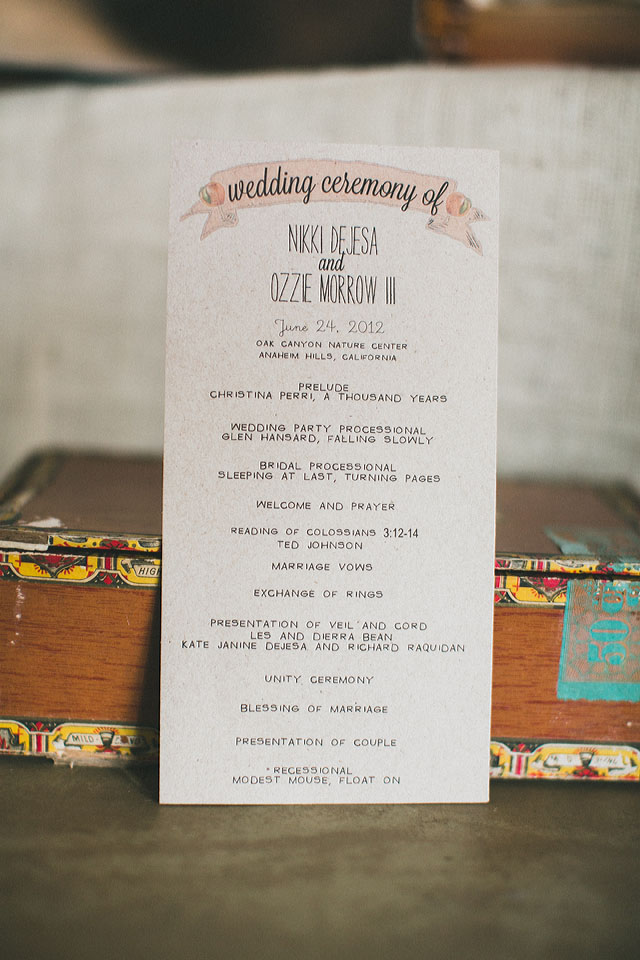 wedding ceremony of
NIKKI DEJESA
and
OZZIE MORROW III
June 24, 2012
OAK CANYON NATURE CENTER
ANAHEIM HILLS, CALIFORNIA
PRELUDE
CHRISTINA PERRI, A THOUSAND YEARS
WEDDING PARTY PROCESSIONAL
GLEN HANSARD, FALLING SLOWLY
BRIDAL PROCESSIONAL
SLEEPING AT LAST, TURNING PAGES
WELCOME AND PRAYER
READING OF COLOSSIANS 3:12-14
TED JOHNSON
MARRIAGE VOWS
EXCHANGE OF RINGS
PRESENTATION OF VEIL AND CORD
LES AND DIERRA BEAN
KATE JANINE DEJESA AND RICHARD RAQUIDAN
UNITY CEREMONY
BLESSING OF MARRIAGE
PRESENTATION OF COUPLE
RECESSIONAL
MODEST MOUSE, FLOAT ON
HIGH
MILD
50